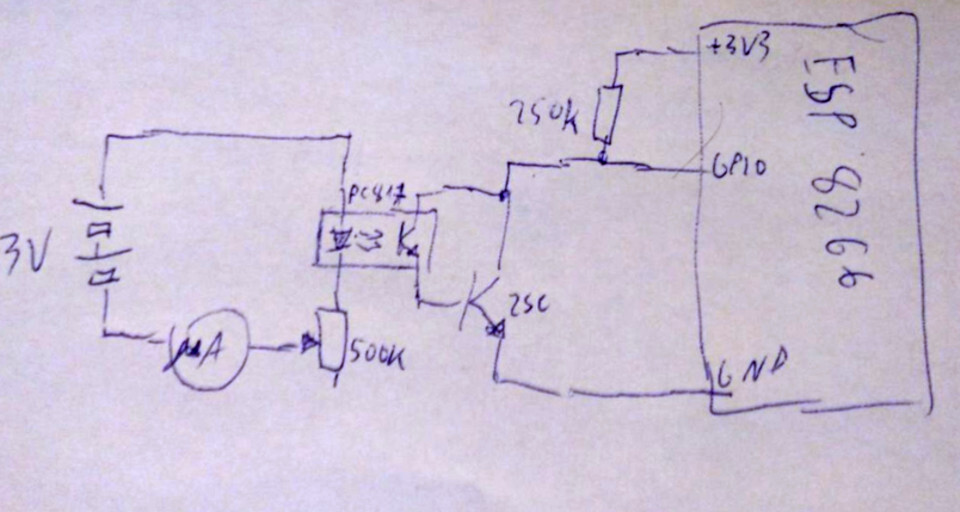 +3V3
250K
GPIO
ESP 8266
PC817
3V
2SC
µA
500K
GND